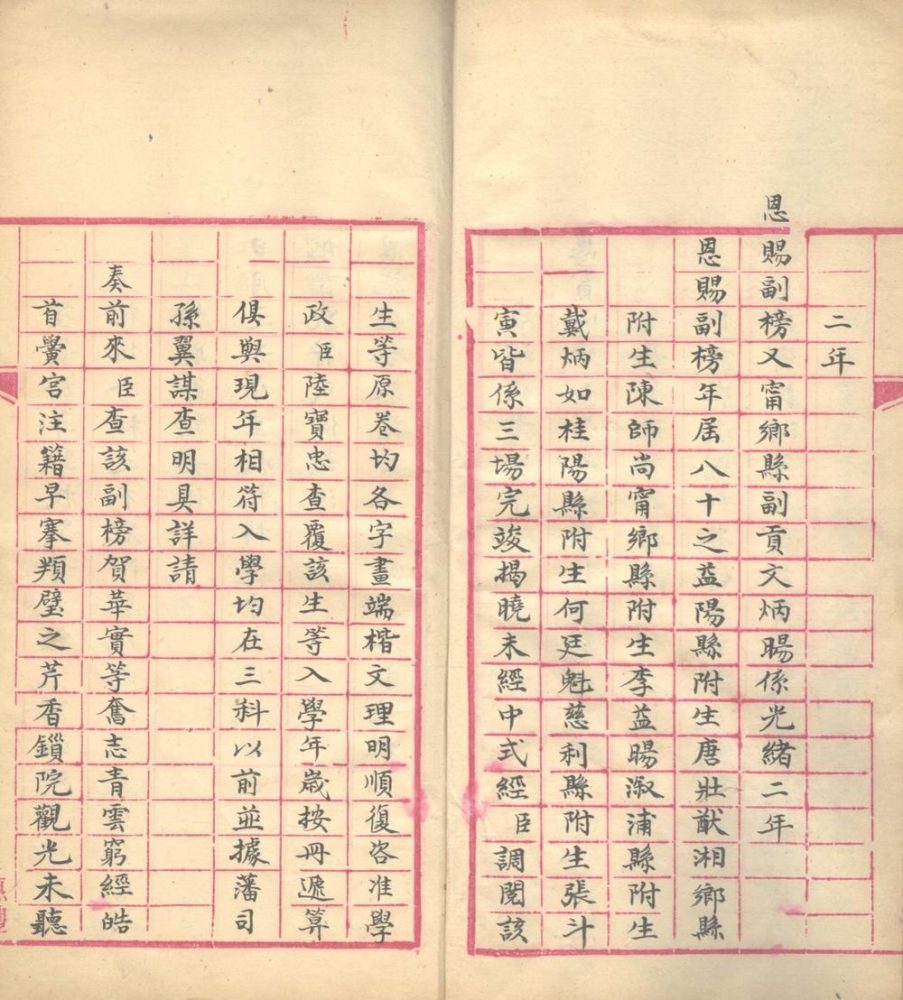 二年
恩賜副榜又甯鄉縣副貢文炳暘係光緒二年
恩賜副榜年屆八十之益陽縣附生唐壯猷湘鄉縣
附生陳師尚甯鄉縣附生李益暘溆浦縣附生
戴炳如桂陽縣附生何廷魁慈利縣附生張斗
寅皆係三場完竣揭曉未經中式經臣調閱該
生等原卷均各字畫端楷文理明順復咨准學
政臣陸寶忠查覆該生等入學年歲按冊遞算
俱與現年相符入學均在三科以前並據藩司
孫翼謀查明具詳請
奏前來臣查該副榜賀華實等奮志青雲窮經皓
首黌宮注籍早搴頖璧之芹香鎻院觀光未聽